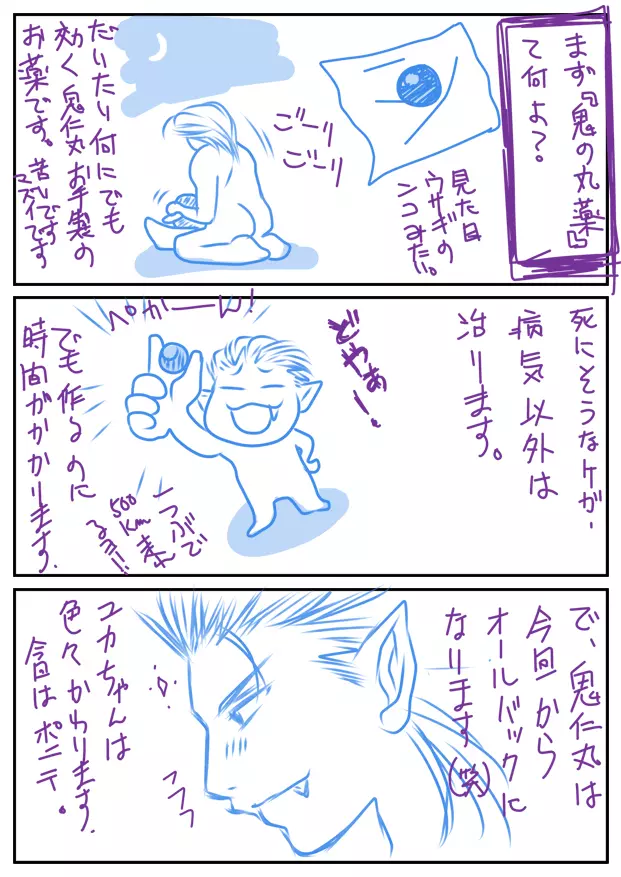 まず『鬼の丸薬』
て何よ？。
見た目
ウサギの
ンコみたい。
ごーり
ごーり
だいたい何にでも
効く鬼仁丸お手製の
お薬です。苦いです
マズイです
死にそうなケガ、
病気以外は
治ります。
どやぁー！
ペかーーん！
でも作るのに
時間がかかります。
一つぶで
500km走れ
るヨ!!
で、鬼仁丸は
今回から
オールバックに
なります(笑)
フフフ
ユカちゃんは
色々かわります。
今日はポニテ。